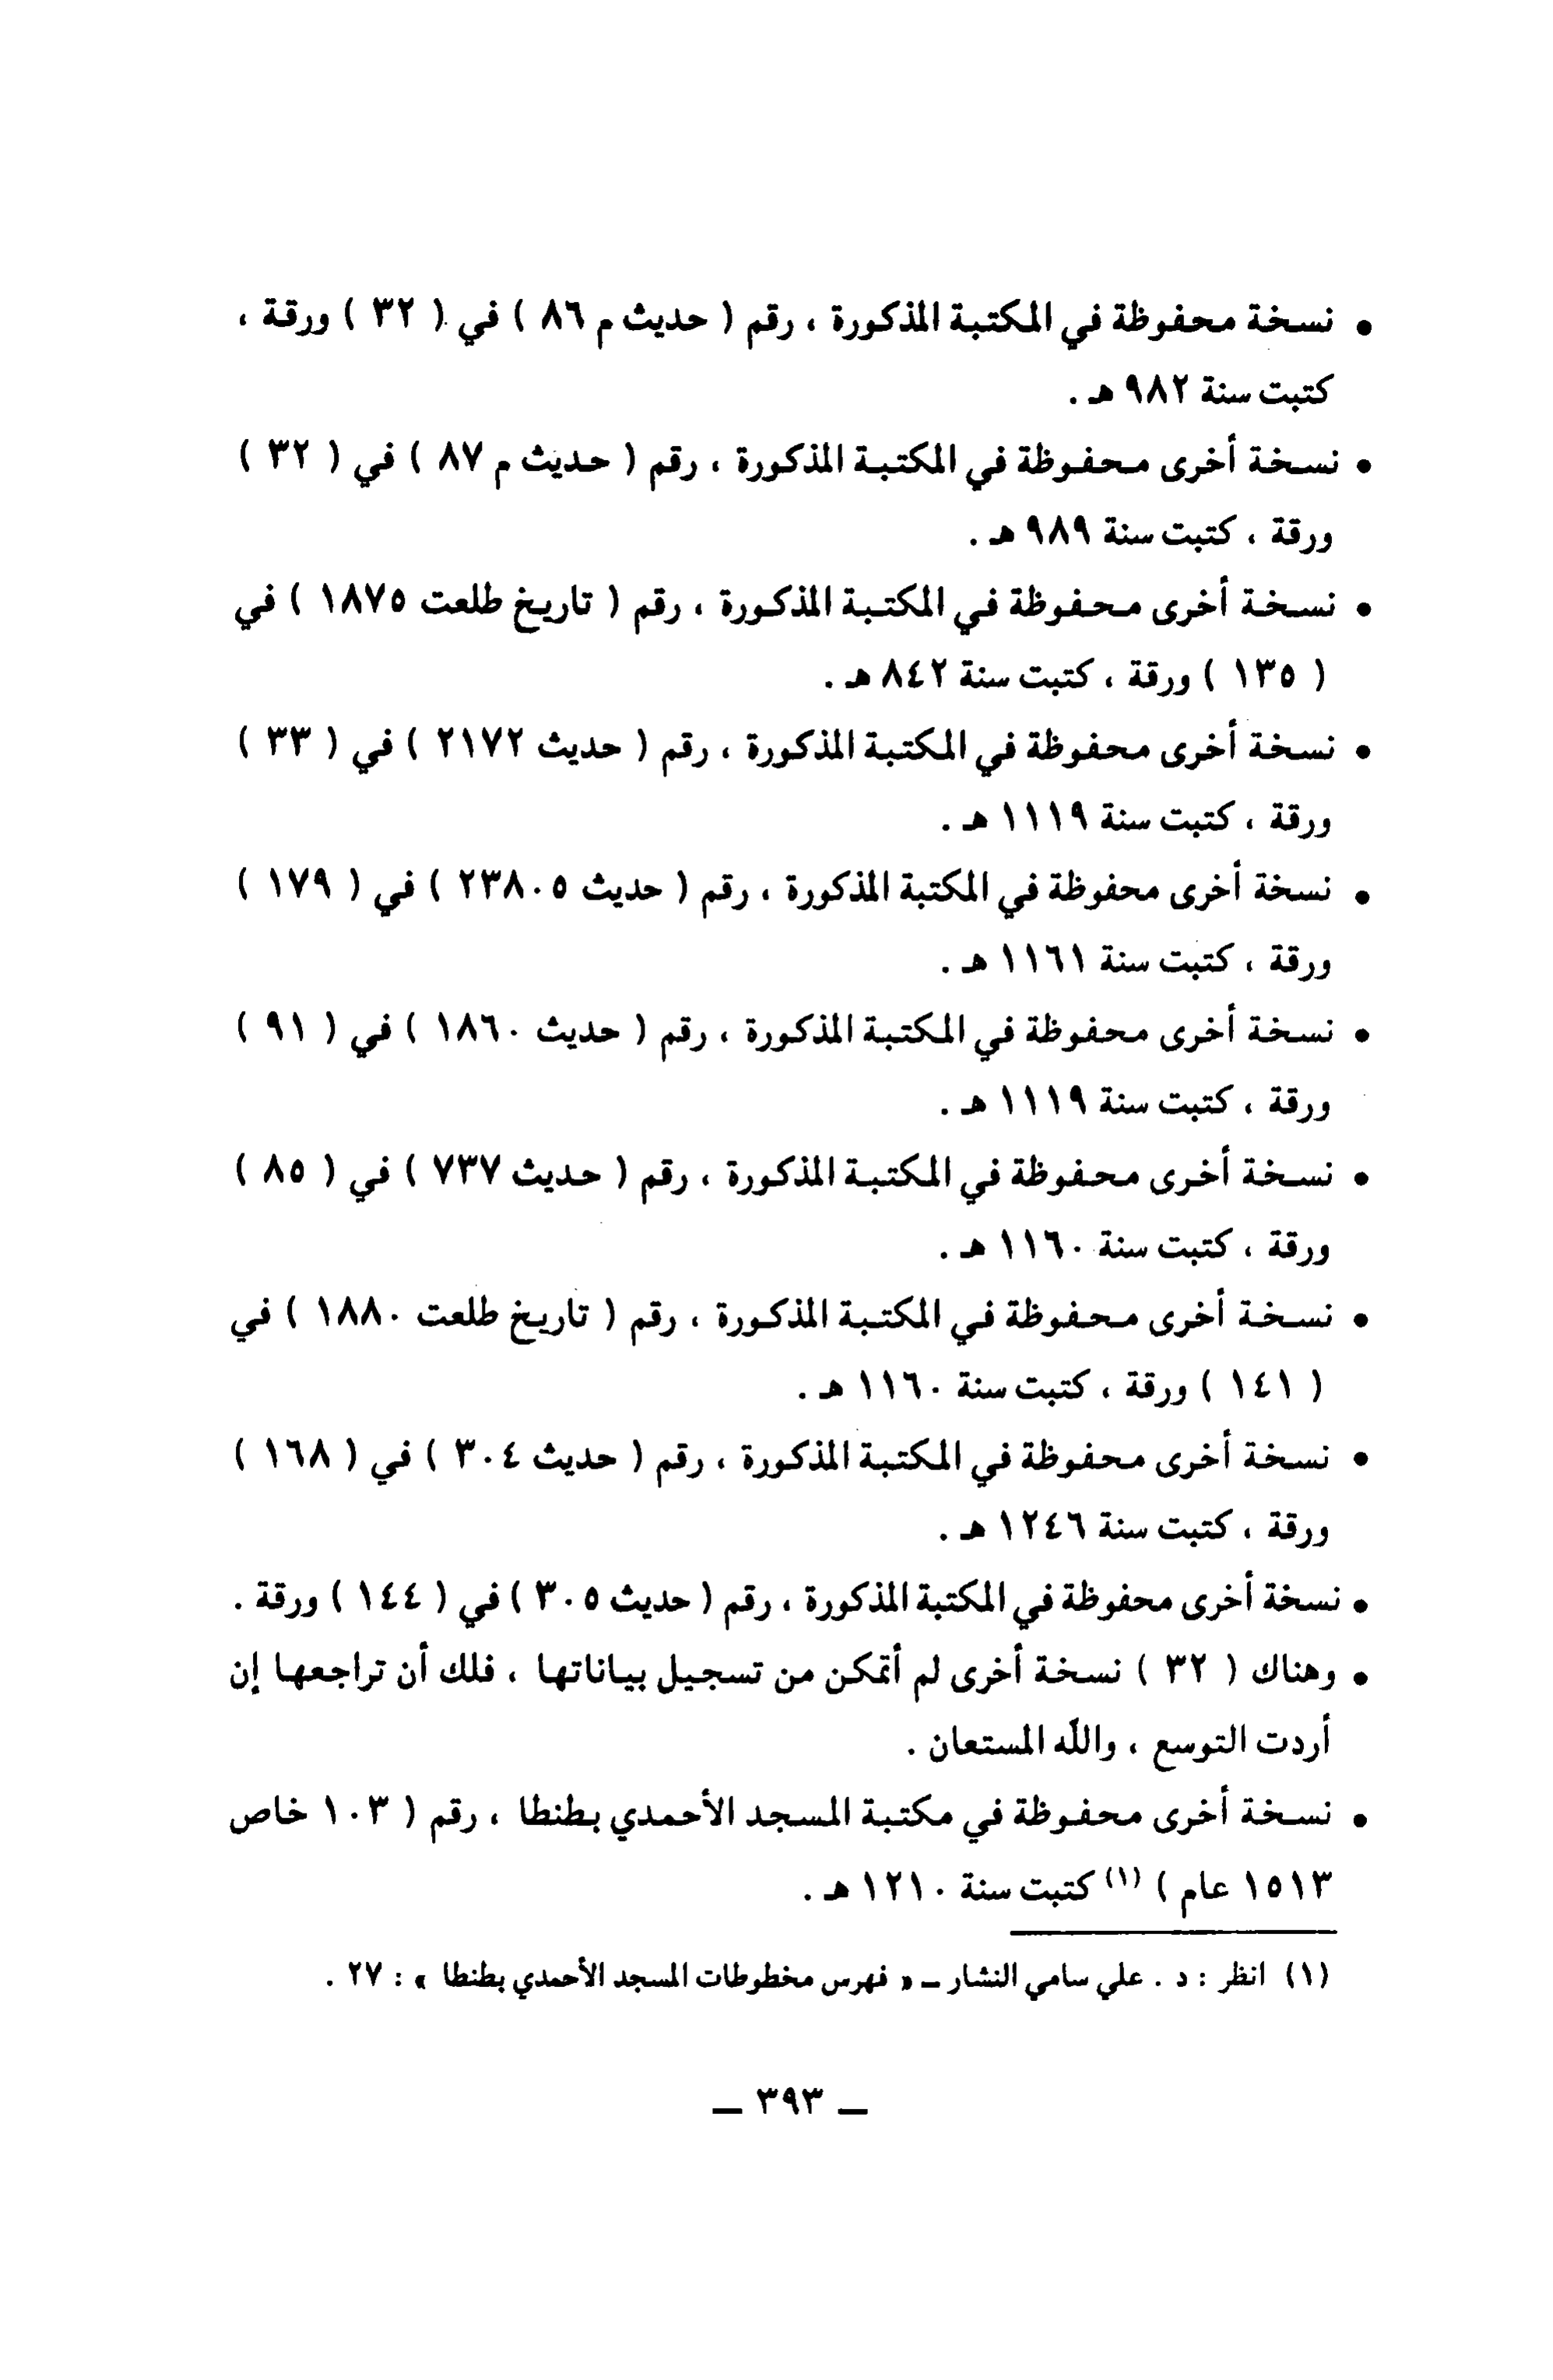 • نسخة محفوظة في المكتبة المذكورة ، رقم ( حديث م ٨٦ ) في ( ٣٢ ) ورقة ،
كتبت سنة ٩٨٢ هـ .
• نسخة أخرى محفوظة في المكتبة المذكورة ، رقم ( حديث م ٨٧ ) في ( ٣٢ )
ورقة ، كتبت سنة ٩٨٩ هـ .
• نسخة أخرى محفوظة في المكتبة المذكورة ، رقم ( تاريخ طلعت ١٨٧٥ ) في
( ١٣٥ ) ورقة ، كتبت سنة ٨٤٢ هـ .
• نسخة أخرى محفوظة في المكتبة المذكورة ، رقم ( حديث ٢١٧٢ ) في ( ٣٣ )
ورقة ، كتبت سنة ١١١٩ هـ .
• نسخة أخرى محفوظة في المكتبة المذكورة ، رقم ( حديث ٢٣٨٠٥ ) في ( ١٧٩ )
ورقة ، كتبت سنة ١١٦١ هـ .
• نسخة أخرى محفوظة في المكتبة المذكورة ، رقم ( حديث ١٨٦٠ ) في ( ٩١ )
ورقة ، كتبت سنة ١١١٩ هـ .
• نسخة أخرى محفوظة في المكتبة المذكورة ، رقم ( حديث ٧٣٧ ) في ( ٨٥ )
ورقة ، كتبت سنة ١١٦٠ هـ .
• نسخة أخرى محفوظة في المكتبة المذكورة ، رقم ( تاريخ طلعت ١٨٨٠ ) في
( ١٤١ ) ورقة ، كتبت سنة ١١٦٠ هـ .
• نسخة أخرى محفوظة في المكتبة المذكورة ، رقم ( حديث ٣٠٤ ) في ( ١٦٨ )
ورقة ، كتبت سنة ١٢٤٦ هـ .
• نسخة أخرى محفوظة في المكتبة المذكورة ، رقم ( حديث ٣٠٥ ) في ( ١٤٤ ) ورقة .
• وهناك ( ٣٢ ) نسخة أخرى لم أتمكن من تسجيل بياناتها ، فلك أن تراجعها إن
أردت التوسع ، والله المستعان .
• نسخة أخرى محفوظة في مكتبة المسجد الأحمدي بطنطا ، رقم ( ١٠٣ خاص
١٥١٣ عام ) (١) كتبت سنة ١٢١٠ هـ .
(١) انظر : د . علي سامي النشار ــ « فهرس مخطوطات المسجد الأحمدي بطنطا » : ٢٧ .
ــ ٣٩٣ ــ